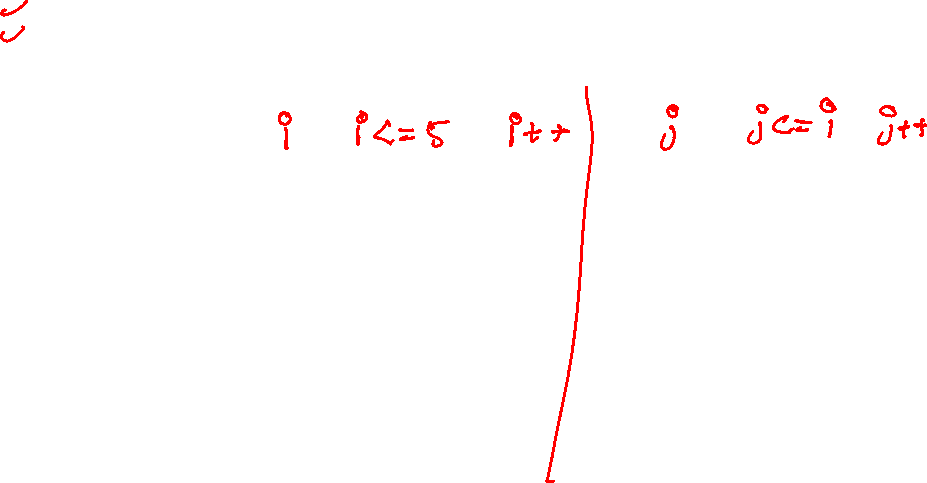 i i<=5 i++ j j<=i j++